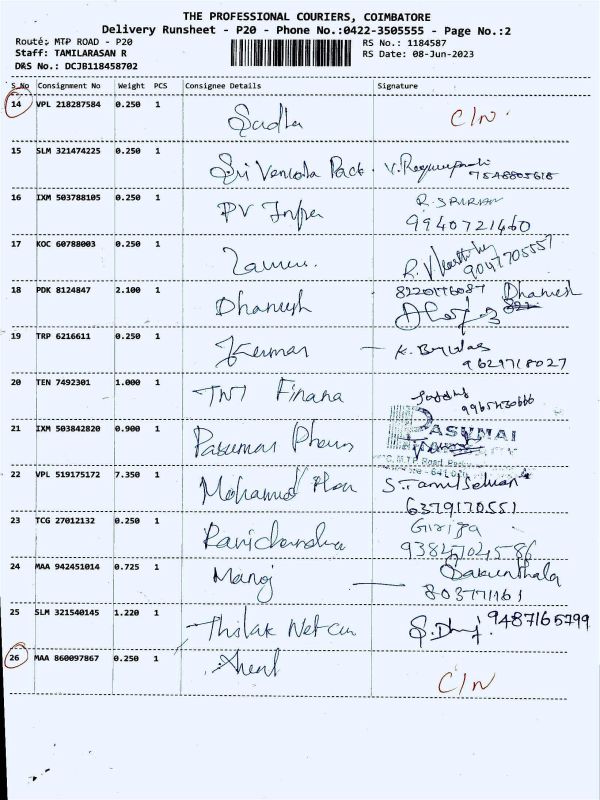 THE PROFESSIONAL COURIERS, COIMBATORE
Delivery Runsheet - P20 - Phone No.:0422-3505555 - Page No.:2
Route: MTP ROAD - P20 RS No.: 1184587
Staff: TAMILARASAN R RS Date: 08-Jun-2023
DRS No.: DCJB118458702
S.No Consignment No Weight PCS Consignee Details Signature
14 VPL 218287584 0.250 1 C/N
15 SLM 321474225 0.250 1 Sri Vencata Pack
16 IXM 503788105 0.250 1 PV Infra
9940721460
17 KOC 60788003 0.250 1
9047705557
18 PDK 8124847 2.100 1 Dhanush 8220176087 Dhanush
19 TRP 6216611 0.250 1 Kumar
9629718027
20 TEN 7492301 1.000 1 TNT Finana
21 IXM 503842820 0.900 1 Pasumai Pharm PASUMAI
22 VPL 519175172 7.350 1 Mohamud S. Tamil Selvan
6379170551
23 TCG 27012132 0.250 1 Ravichandra Girija
9384704586
24 MAA 942451014 0.725 1 Manoj Sakunthala
803771161
25 SLM 321540145 1.220 1 Thilak 9487165799
26 MAA 860097867 0.250 1 C/N